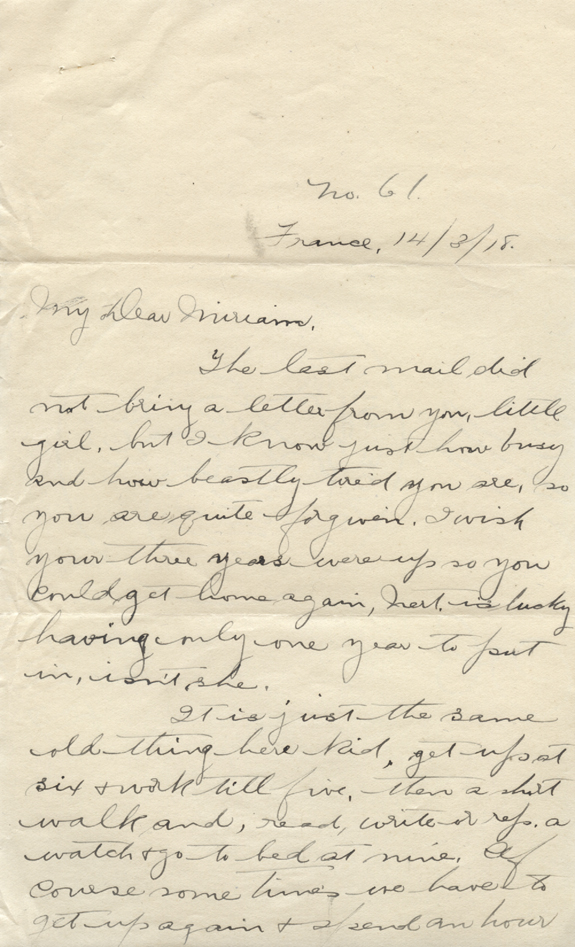 No. 61.
France, 14/3/18.
My Dear Miriam,
The last mail did
not bring a letter from you, little
girl, but I know just how busy
and how beastly tired you are, so
you are quite forgiven. I wish
your three years were up so you
could get home again, Gert. is lucky
having only one year to put
in, isn't she.
It is just the same
old thing here kid, get up at
six & work till five, then a short
walk and, read, write or rep. a
watch & go to bed at nine. Of
course some times we have to
get up again & spend an hour